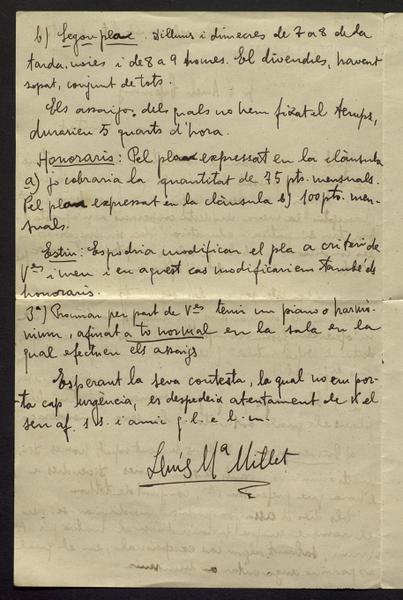 b) Segon plac. Dilluns i dimecres de 7 a 8 de la
tarda, noies i de 8 a 9 homes. El divendres, havent
sopat, conjunt de tots.
Els assaijos dels quals no hem fixat el temps,
durarien 5 quarts d'hora.
Honoraris: Pel plan expressat en la clàusula
a) jo cobraria la quantitat de 75 pts. mensuals.
Pel plan expressat en la clàusula b) 100 pts. men-
suals.
Estiu: Es podria modificar el pla a criteri de
Vès i meu i en aquest cas modificariem també els
honoraris.
3ª) Procurar per part de Vès tenir un piano o harmò-
nium, afinat a to normal en la sala en la
qual efectuen els assaigs
Esperant la seva contesta, la qual no empor-
ta cap urgència, es despedeix atentament de V. el
seu af. s.s. i amic q. l. e. l. m.
Lluís Mª Millet